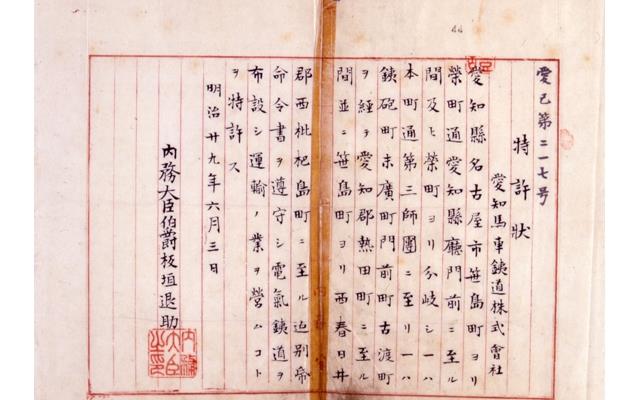 44
愛己第二一七号
特許状
愛知馬車銕道株式會社
愛知縣名古屋市笹島町ヨリ
榮町通愛知縣廳門前ニ至ル
間及ヒ榮町ヨリ分岐シ一ハ
本町通第三師團ニ至リ一ハ
銕砲町末廣町門前町古渡町
ヲ経テ愛知郡熱田町ニ至ル
間並ニ笹島町ヨリ西春日井
郡西枇杷島町ニ至ル迄別帋
命令書ヲ遵守シ電氣銕道ヲ
布設シ運輸ノ業ヲ營ムコト
ヲ特許ス
明治廿九年六月三日
内務大臣伯爵板垣退助
内務大臣之印